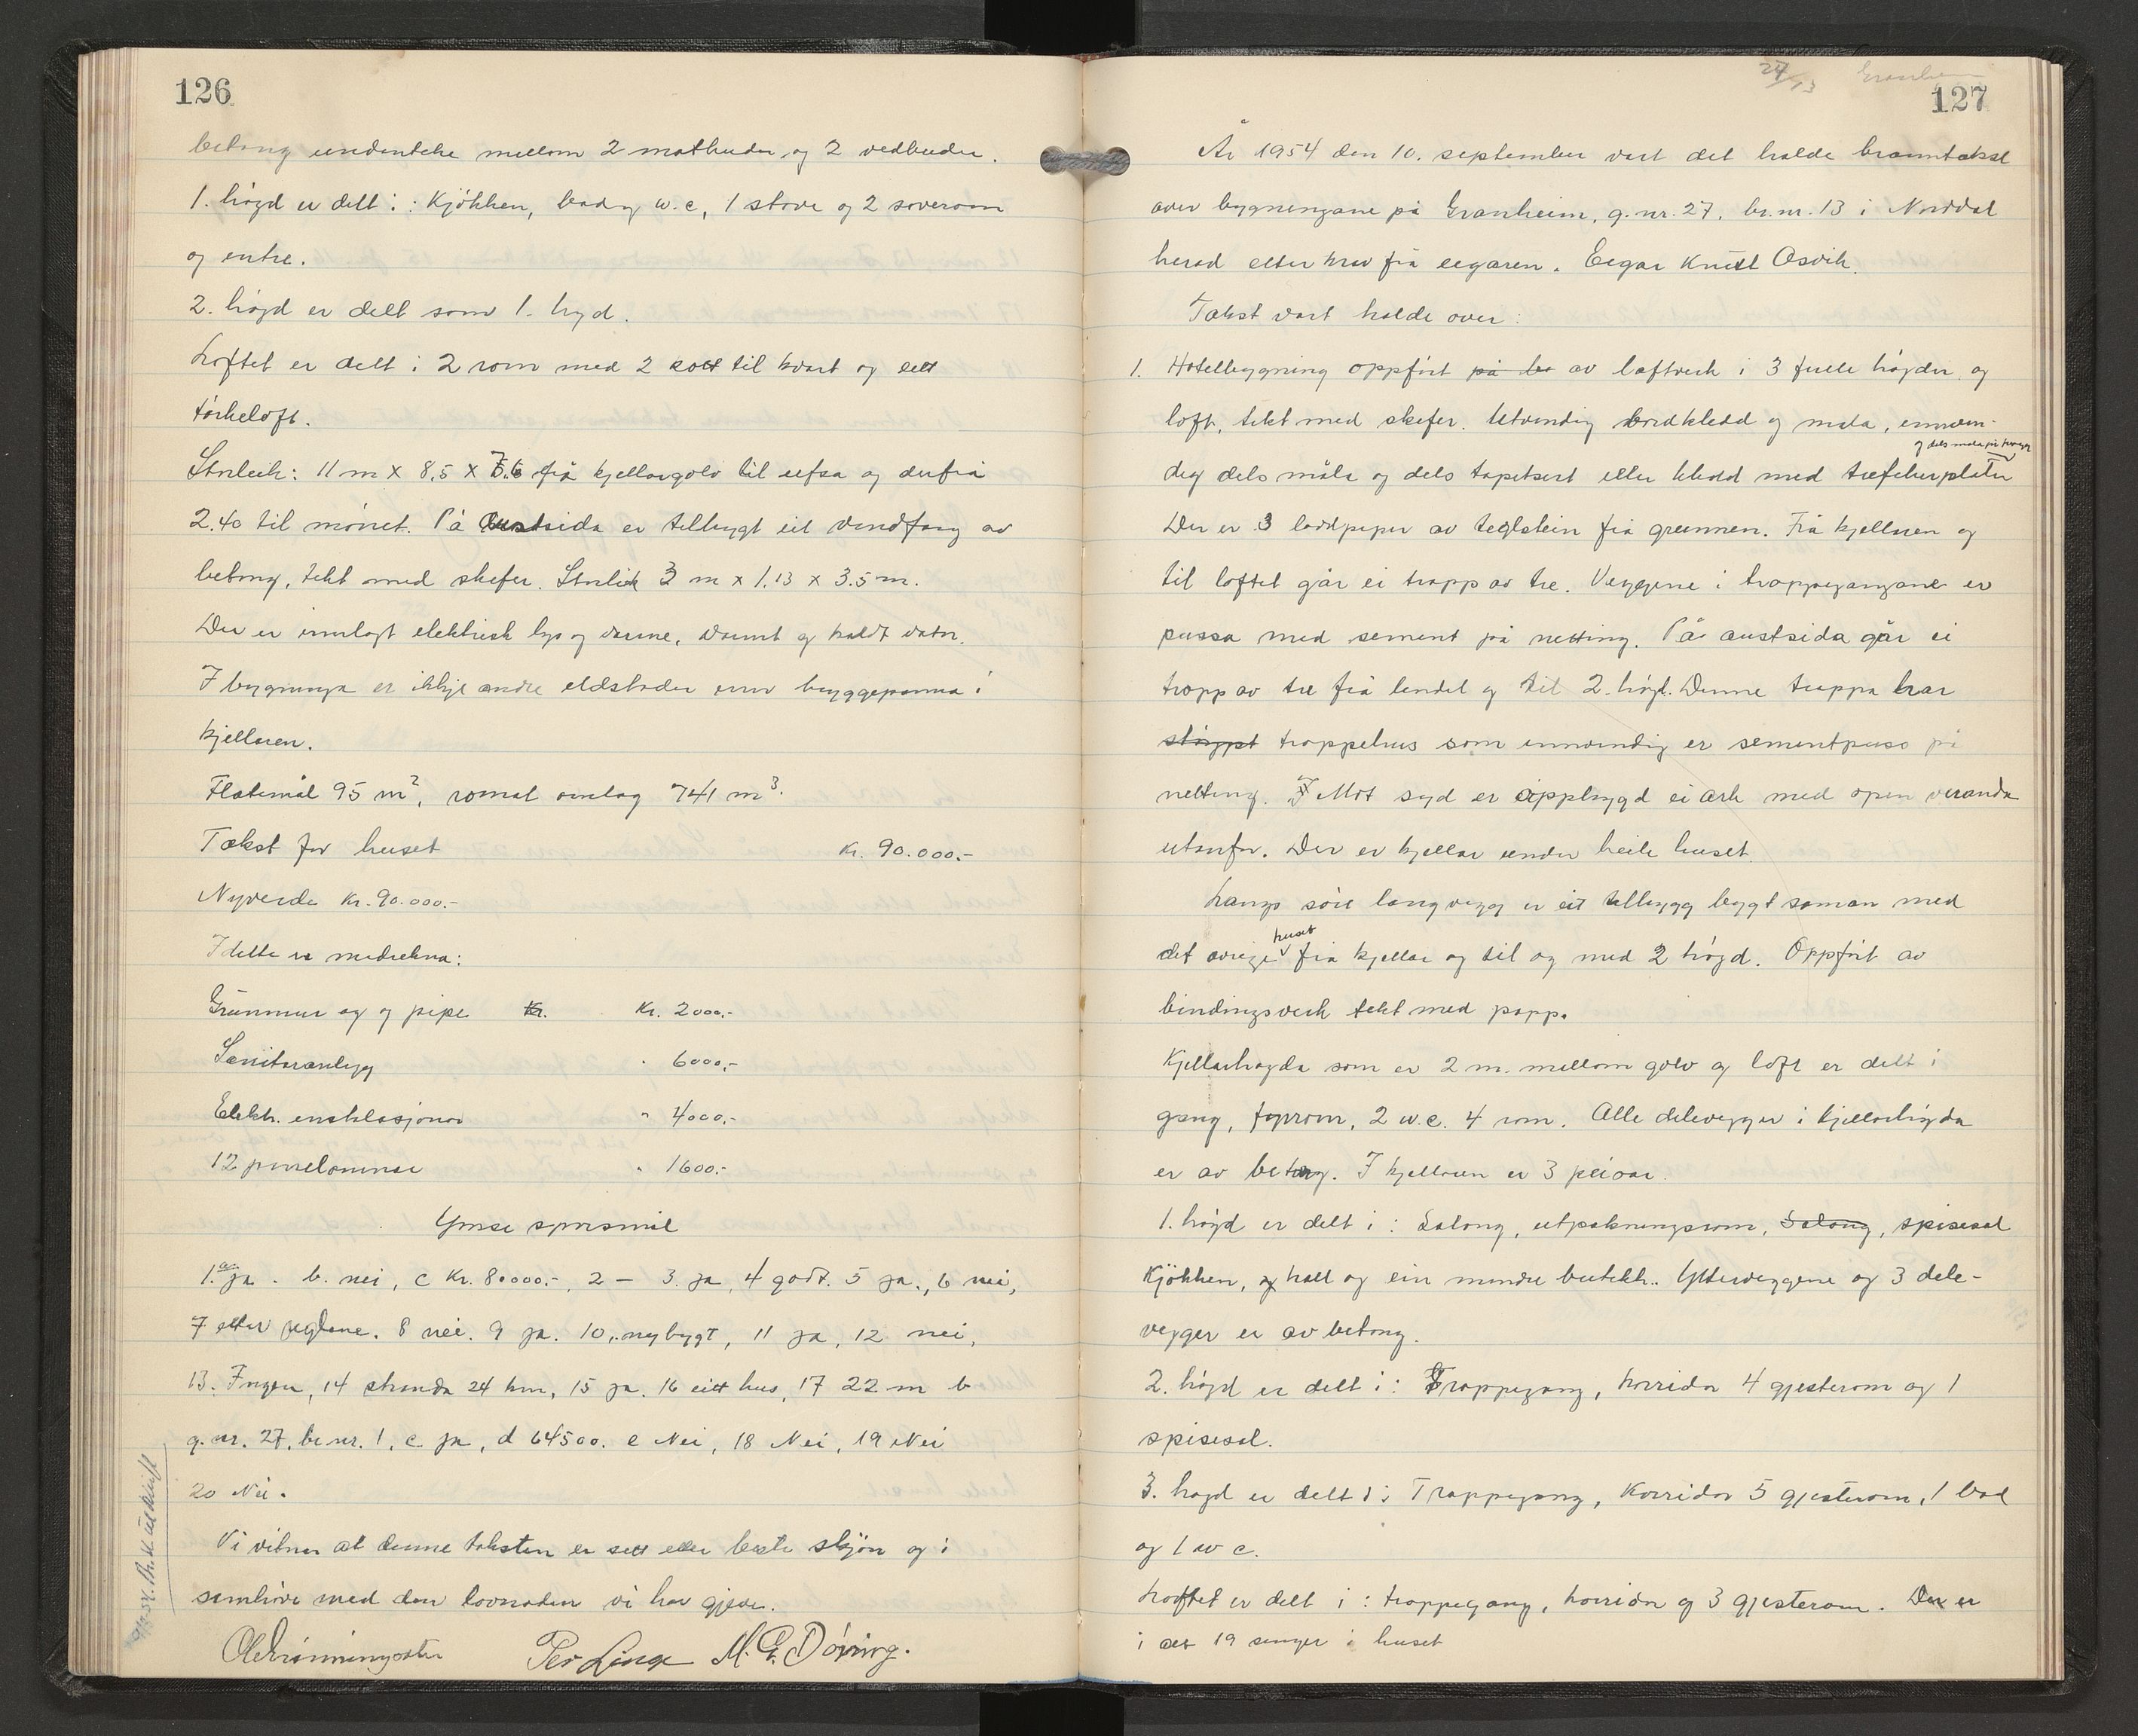 126
betong undenteke mellom 2 matbuder og 2 vedbuder.
1. högd er delt i: Kjökken, bad og w.c, 1 stove og 2 soverom
og entre.
2. högd er delt som 1. hogd.
Loftet er delt i 2 rom med 2 kott til kvart og eitt
törkeloft.
Storleik: 11 m x 8,5 x 7.6 frå kjellargolv til ufsa og derfrå
2.40 til mönet. På austsida er tilbygt eit vindfang av
betong, tekt med skifer. Storleik 3 m x 1.13 x 3.5 m.
Der er innlagt elektrisk lys og varme, varmt og kaldt vatn.
I bygninga er ikkje andre eldstader enn bryggepanna i
kjellaren.
Flatemål 95 m², romal omlag 741 m³.
Takst for huset Kr. 90.000.-
Nyverde Kr. 90.000.-
I dette er medrekna:
Grunnmur og og pipe Kr. Kr. 2000,-
Sanitæranlegg " 6000,-
Elektr. installasjonar " 4000,-
12 panelomnar " 1600.-
Ymse spursmål
1. a. ja. b. nei, c Kr. 80000.-, 2 — 3. ja, 4 godt. 5 ja., 6 nei,
7 etter reglane. 8 nei. 9 ja. 10,. nybygt, 11 ja, 12 nei,
13. Ingen, 14 stranda 24 km, 15 ja. 16 eitt hus, 17 22 m b
g.nr. 27, br.nr. 1, c ja, d 64500. e Nei, 18 Nei, 19 Nei
20 Nei.
Vi vitnar at denne taksten er sett etter beste skjön og i
samhöve med den lovnaden vi har gjeve.
Per Linge M. G. Döving.
27/13
127
År 1954 den 10. september vart det halde branntakst
over bygningane på Granheim, g.nr. 27, br.nr. 13 i Norddal
herad etter krav frå eigaren. Eigar Knut Osvik.
Takst vart halde over:
1. Hotellbygning oppfört på be av laftverk i 3 fulle högder og
loft, tekt med skifer. Utvendig bordkledd og mala, innven-
og dels mala på
dig dels måla og dels tapetsert eller kledd med trefiberplater
Der er 3 loddpiper av teglstein frå grunnen. Frå kjellaren og
til loftet går ei trapp av tre. Veggene i trappegangane er
pussa med sement på netting. På austsida går ei
trapp av tre frå lendet og til 2. högd. Denne trappa har
støypt trappehus som innvendig er sementpuss på
netting. I Mot syd er oppbygd ei ark med open veranda
utanfor. Der er kjellar under heile huset.
Langs söre langvegg er eit tilbygg bygt saman med
huset
det övrige frå kjellar og til og med 2 högd. Oppfört av
bindingsverk tekt med papp.
Kjellarhögda som er 2 m. mellom golv og loft er delt i
gang, fyrrom, 2 w.c. 4 rom. Alle delevegger i kjellarhögda
er av betong. I kjellaren er 3 peisar.
1. högd er delt i: Salong, utpakningsrom, Salong, spisesal
Kjökken, og hall og ein mindre butikk. Ytterveggene og 3 dele-
vegger er av betong.
2. högd er delt i: Trappegang, korridor 4 gjesterom og 1
spisesal.
3. högd er delt i: Trappegang, Korridor 5 gjesterom, 1 bad
og 1 w c.
Loftet er delt i: trappegang, korridor og 3 gjesterom. Der er
i alt 19 senger i huset